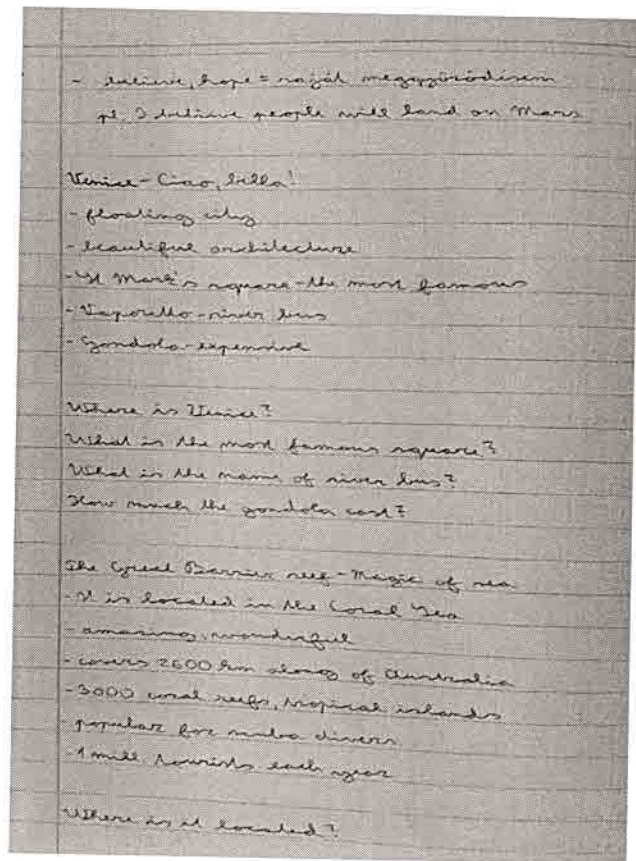 - believe, hope = saját meggyőződésem
pl. I believe people will land on Mars
Venice - Ciao, bella!
- floating city
- beautiful architecture
- St Mark's square - the most famous
- Vaporetto - river bus
- Gondola - expensive
Where is Venice?
What is the most famous square?
What is the name of river bus?
How much the gondola cost?
The Great Barrier reef - Magic of sea
- It is located in the Coral Sea
- amazing, wonderful
- covers 2600 km along of Australia
- 3000 coral reefs, tropical islands
- popular for scuba divers
- 1 mill. tourists each year
Where is it located?